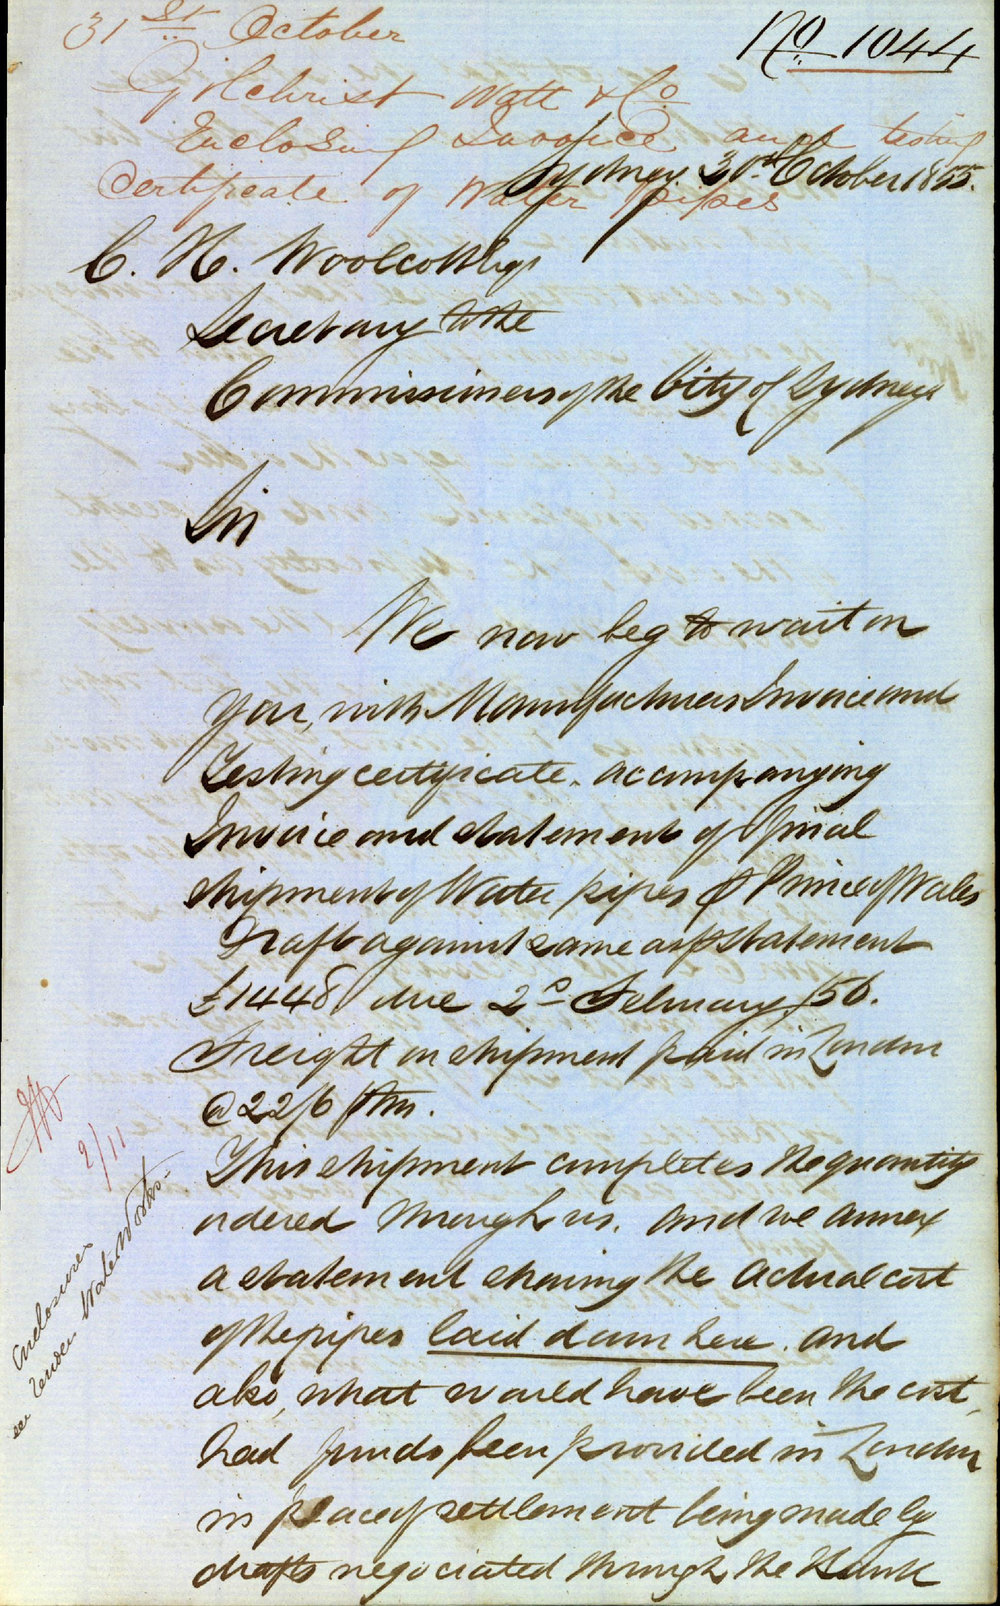 31st October
No 1044
Gilchrist Watt & Co
Enclosing Invoice and testing
Certificate of Water pipes
Sydney 30th October 1855.
C. H. Woolcott Esqr
Secretary to the
Commissioners of the City of Sydney
Sir
We now beg to wait on
you, with Manufacturers Invoice and
Testing certificate. accompanying
Invoice and statement of final
shipment of Water pipes p Prince of Wales
Draft against same as p statement
£1448 due 2d February /56.
Freight on shipment paid in London
@ 22/6 p ton.
This shipment completes the quantity
ordered through us. and we annex
a statement shewing the actual cost
of the pipes laid down here. and
also, what would have been the cost,
had funds been provided in London
in place of settlement being made by
drafts negociated through the Bank
2/11
Enclosures
see Water Works